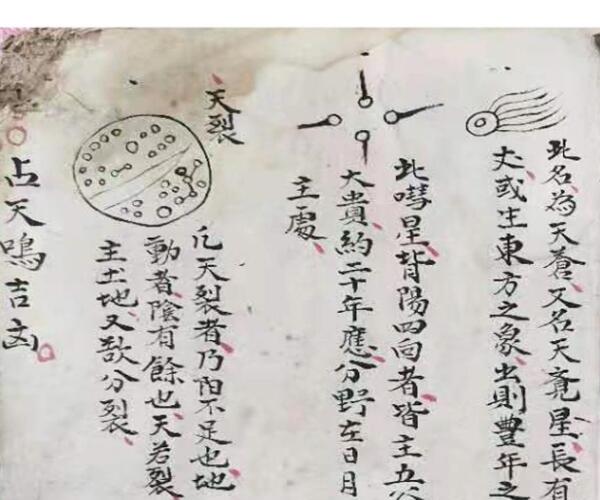 此名為天蒼又名天竟星長有
丈或生東方之象出則豐年之
此嘒星背陽四向者皆主五
大貴約二十年應分野在日月
主處
天裂
凡天裂者乃阳不足也地
動者陰有餘也天若裂
主土地又欲分裂
占天鳴吉凶